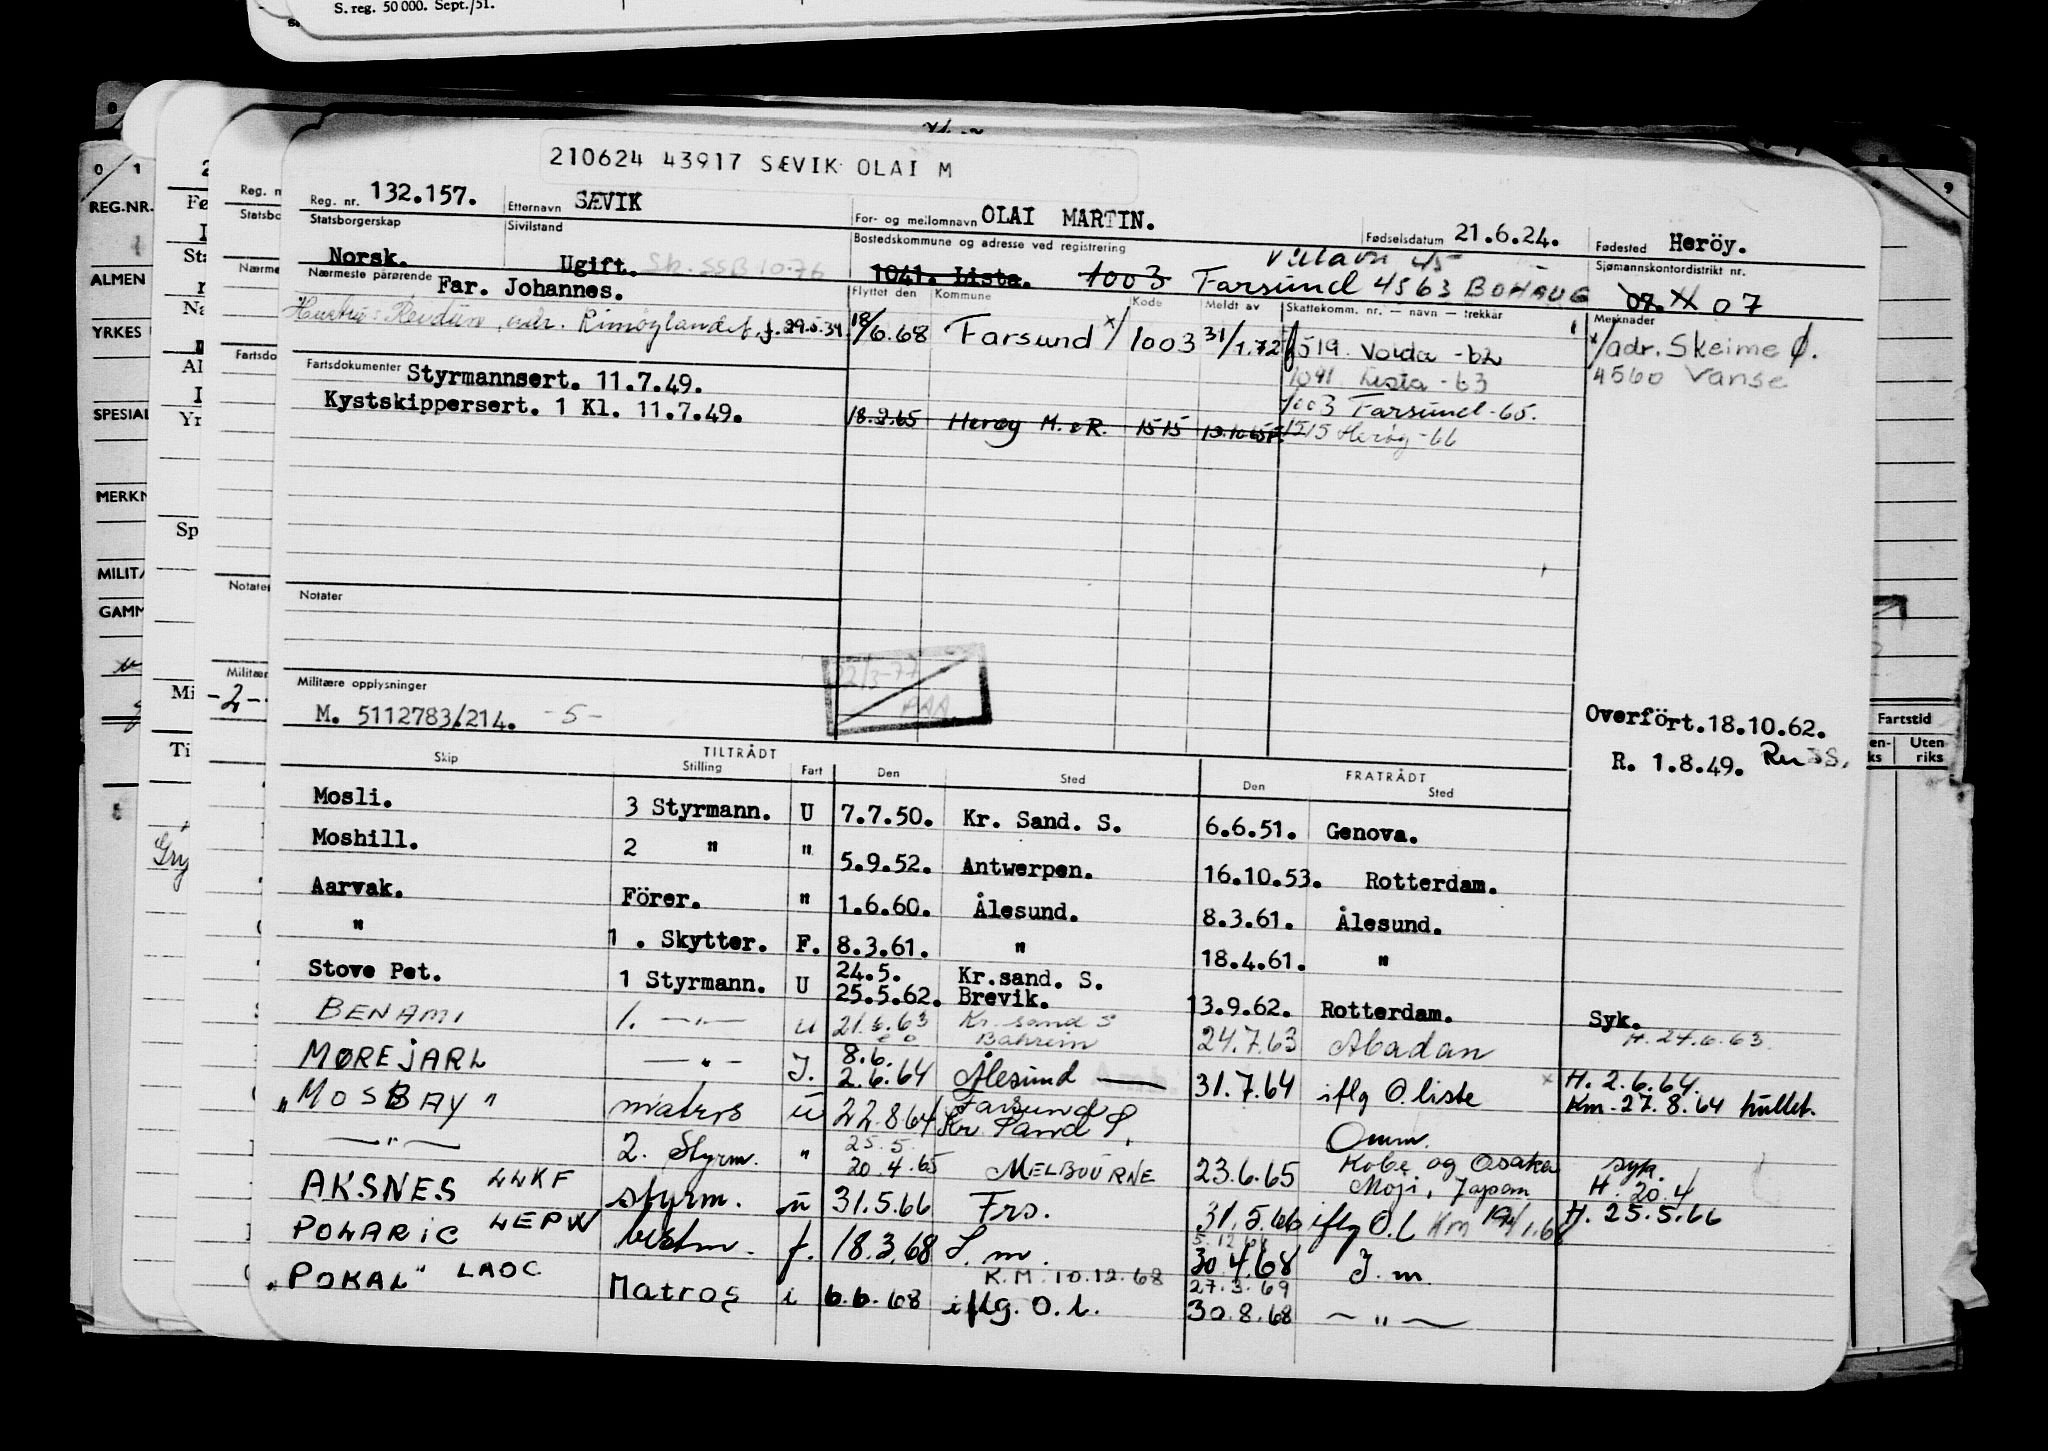 S. reg. 50 000. Sept./51.
210624 43917 SÆVIK OLAI M
Reg. nr. 132.157. Etternavn SÆVIK For- og mellomnavn OLAI MARTIN. Fødselsdatum 21.6.24. Fødested Heröy.
Statsborgerskap Sivilstand Bostedskommune og adresse ved registrering Sjømannskontordistrikt nr.
Norsk. Ugift. 1041. Lista. 1003 Farsund 4563 BORHAUG 07. 07
Nærmeste pårørende Far. Johannes. Flyttet den Kommune Kode Meldt av Skattekomm. nr. — navn — trekkår Merknader
Hustru: Reidun, adr. 29.5.34. 18/6.68 Farsund x/ 1003 31/1.72 1519 Volda -62 x/adr. Skeime Ø.
Fartsdokumenter Styrmannsert. 11.7.49. 1041 Lista -63 4560 Vanse
Kystskippersert. 1 Kl. 11.7.49. 1003 Farsund -65.
18.9.65 Herøy M. & R. 1515 1515 Herøy -66
Notater
Militære opplysninger
M. 5112783/214. -5-
22/3-77
Overfört.18.10.62.
R. 1.8.49.
Skip TILTRÅDT Stilling Fart Den Sted FRATRÅDT Den Sted
Mosli. 3 Styrmann. U 7.7.50. Kr. Sand. S. 6.6.51. Genova.
Moshill. 2 " " 5.9.52. Antwerpen. 16.10.53. Rotterdam.
Aarvak. Förer. " 1.6.60. Ålesund. 8.3.61. Ålesund.
" 1 . Skytter. F. 8.3.61. " 18.4.61. "
Stove Pet. 1 Styrmann. U 24.5. Kr.sand. S.
25.5.62. Brevik. 13.9.62. Rotterdam. Syk.
BENAMI 1. —"— u 21.6.63 Kr. sand S
Bahrein 24.7.63 Abadan H. 24.6.63.
MØREJARL —"— J. 8.6.
2.6.64 Ålesund — 31.7.64 iflg O. liste H. 2.6.64.
"MOSBAY" matros u 22.8.64 Farsund
Kr Sand S. Omm. Km. 27.8.64 hullet.
—"— 2. Styrm. " 25.5.
20.4.65 MELBOURNE 23.6.65 Kobe og Osaka
Moji, Japan syk.
H. 20.4
AKSNES LLKF styrm. u 31.5.66 Frs. 31.5.66 iflg O.l H. 25.5.66
POLARIC LEPW bestm. f. 18.3.68 S.m. 30.4.68 J.m.
K.M. 10.12.68 27.3.69
"POKAL" LAOC Matros i 6.6.68 iflg. O.l. 30.8.68 —"—
REG.NR.
ALMEN
YRKES
SPESIAL
MERKN
MILITÆ
GAMM
Fartstid
Uten-
riks